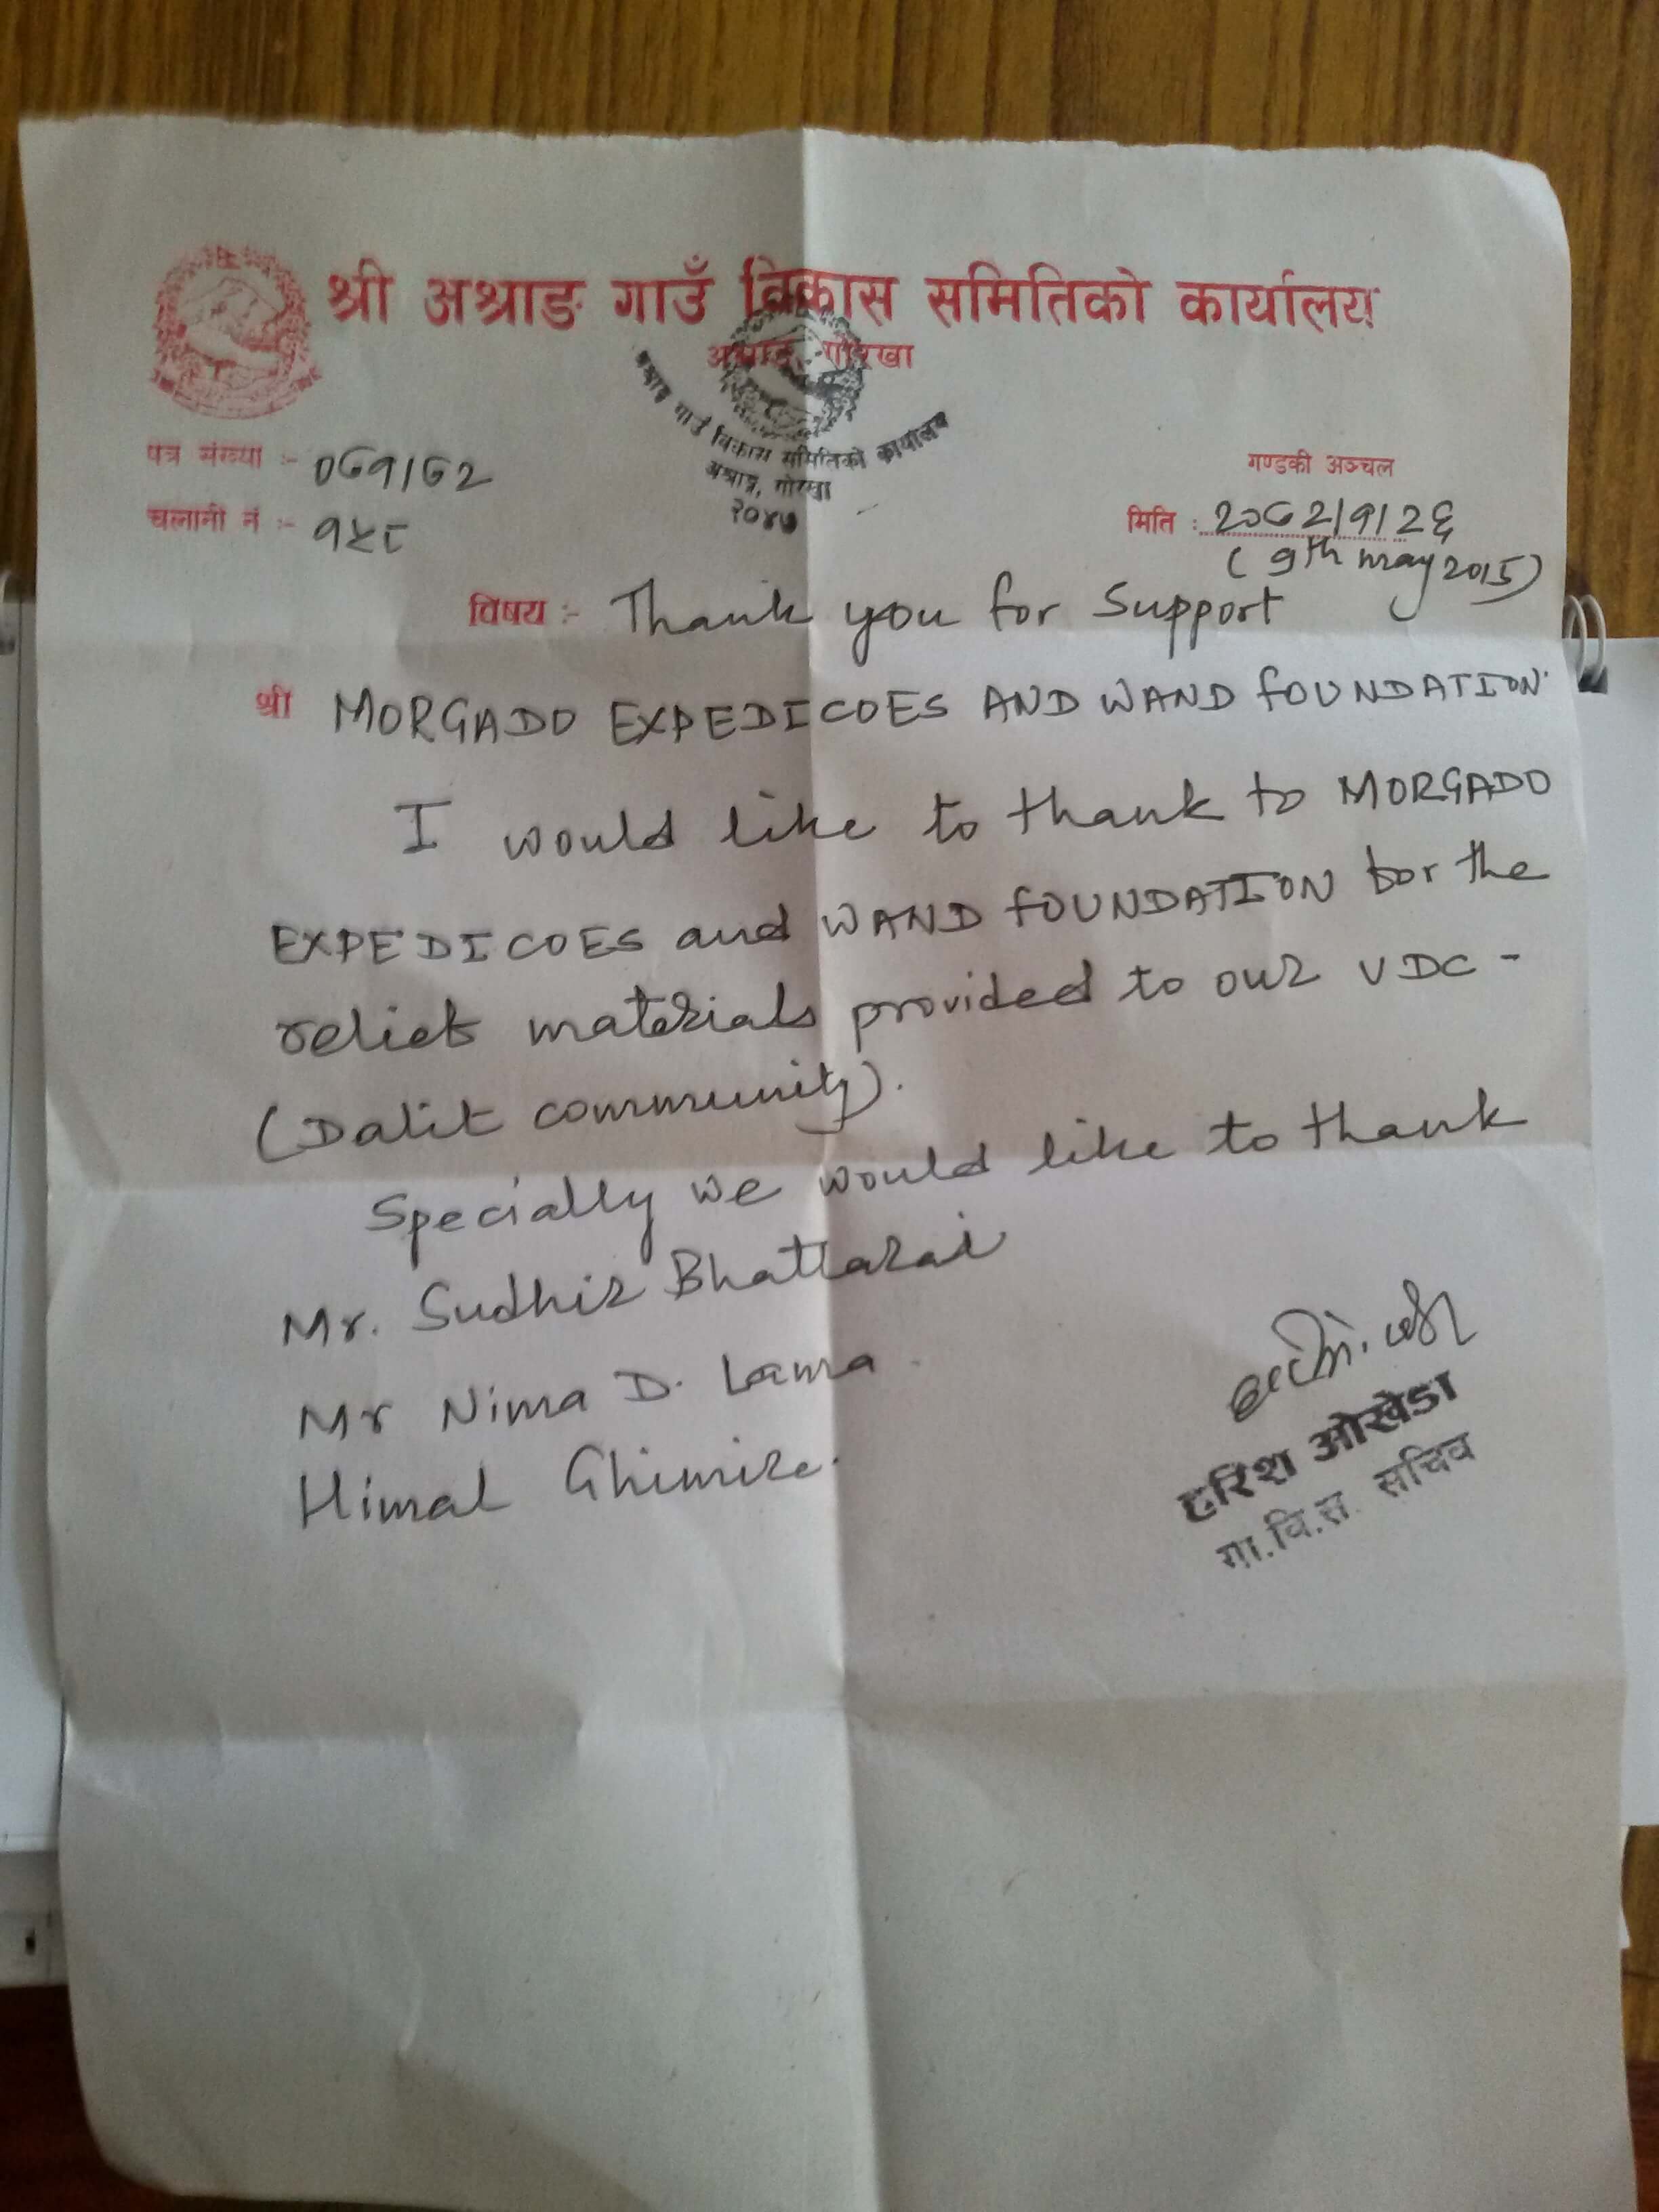 श्री अश्राङ गाउँ विकास समितिको कार्यालय
अश्राङ, गोरखा
अश्राङ्ग गाउँ विकास समितिको कार्यालय
अश्राङ्ग, गोरखा
२०४७
पत्र संख्या :- ०७१/७२
चलानी नं :- १५८
गण्डकी अञ्चल
मिति : २०७२/१/२६
(9th may 2015)
विषय :- Thank you for Support
श्री MORGADO EXPEDICOES AND WAND FOUNDATION.
I would like to thank to MORGADO
EXPEDICOES and WAND FOUNDATION for the
relief materials provided to our VDC -
(Dalit community).
Specially we would like to thank
Mr. Sudhir Bhattarai
Mr Nima D. Lama
Himal Ghimire.
हरिश ओखेडा
गा.वि.स. सचिव